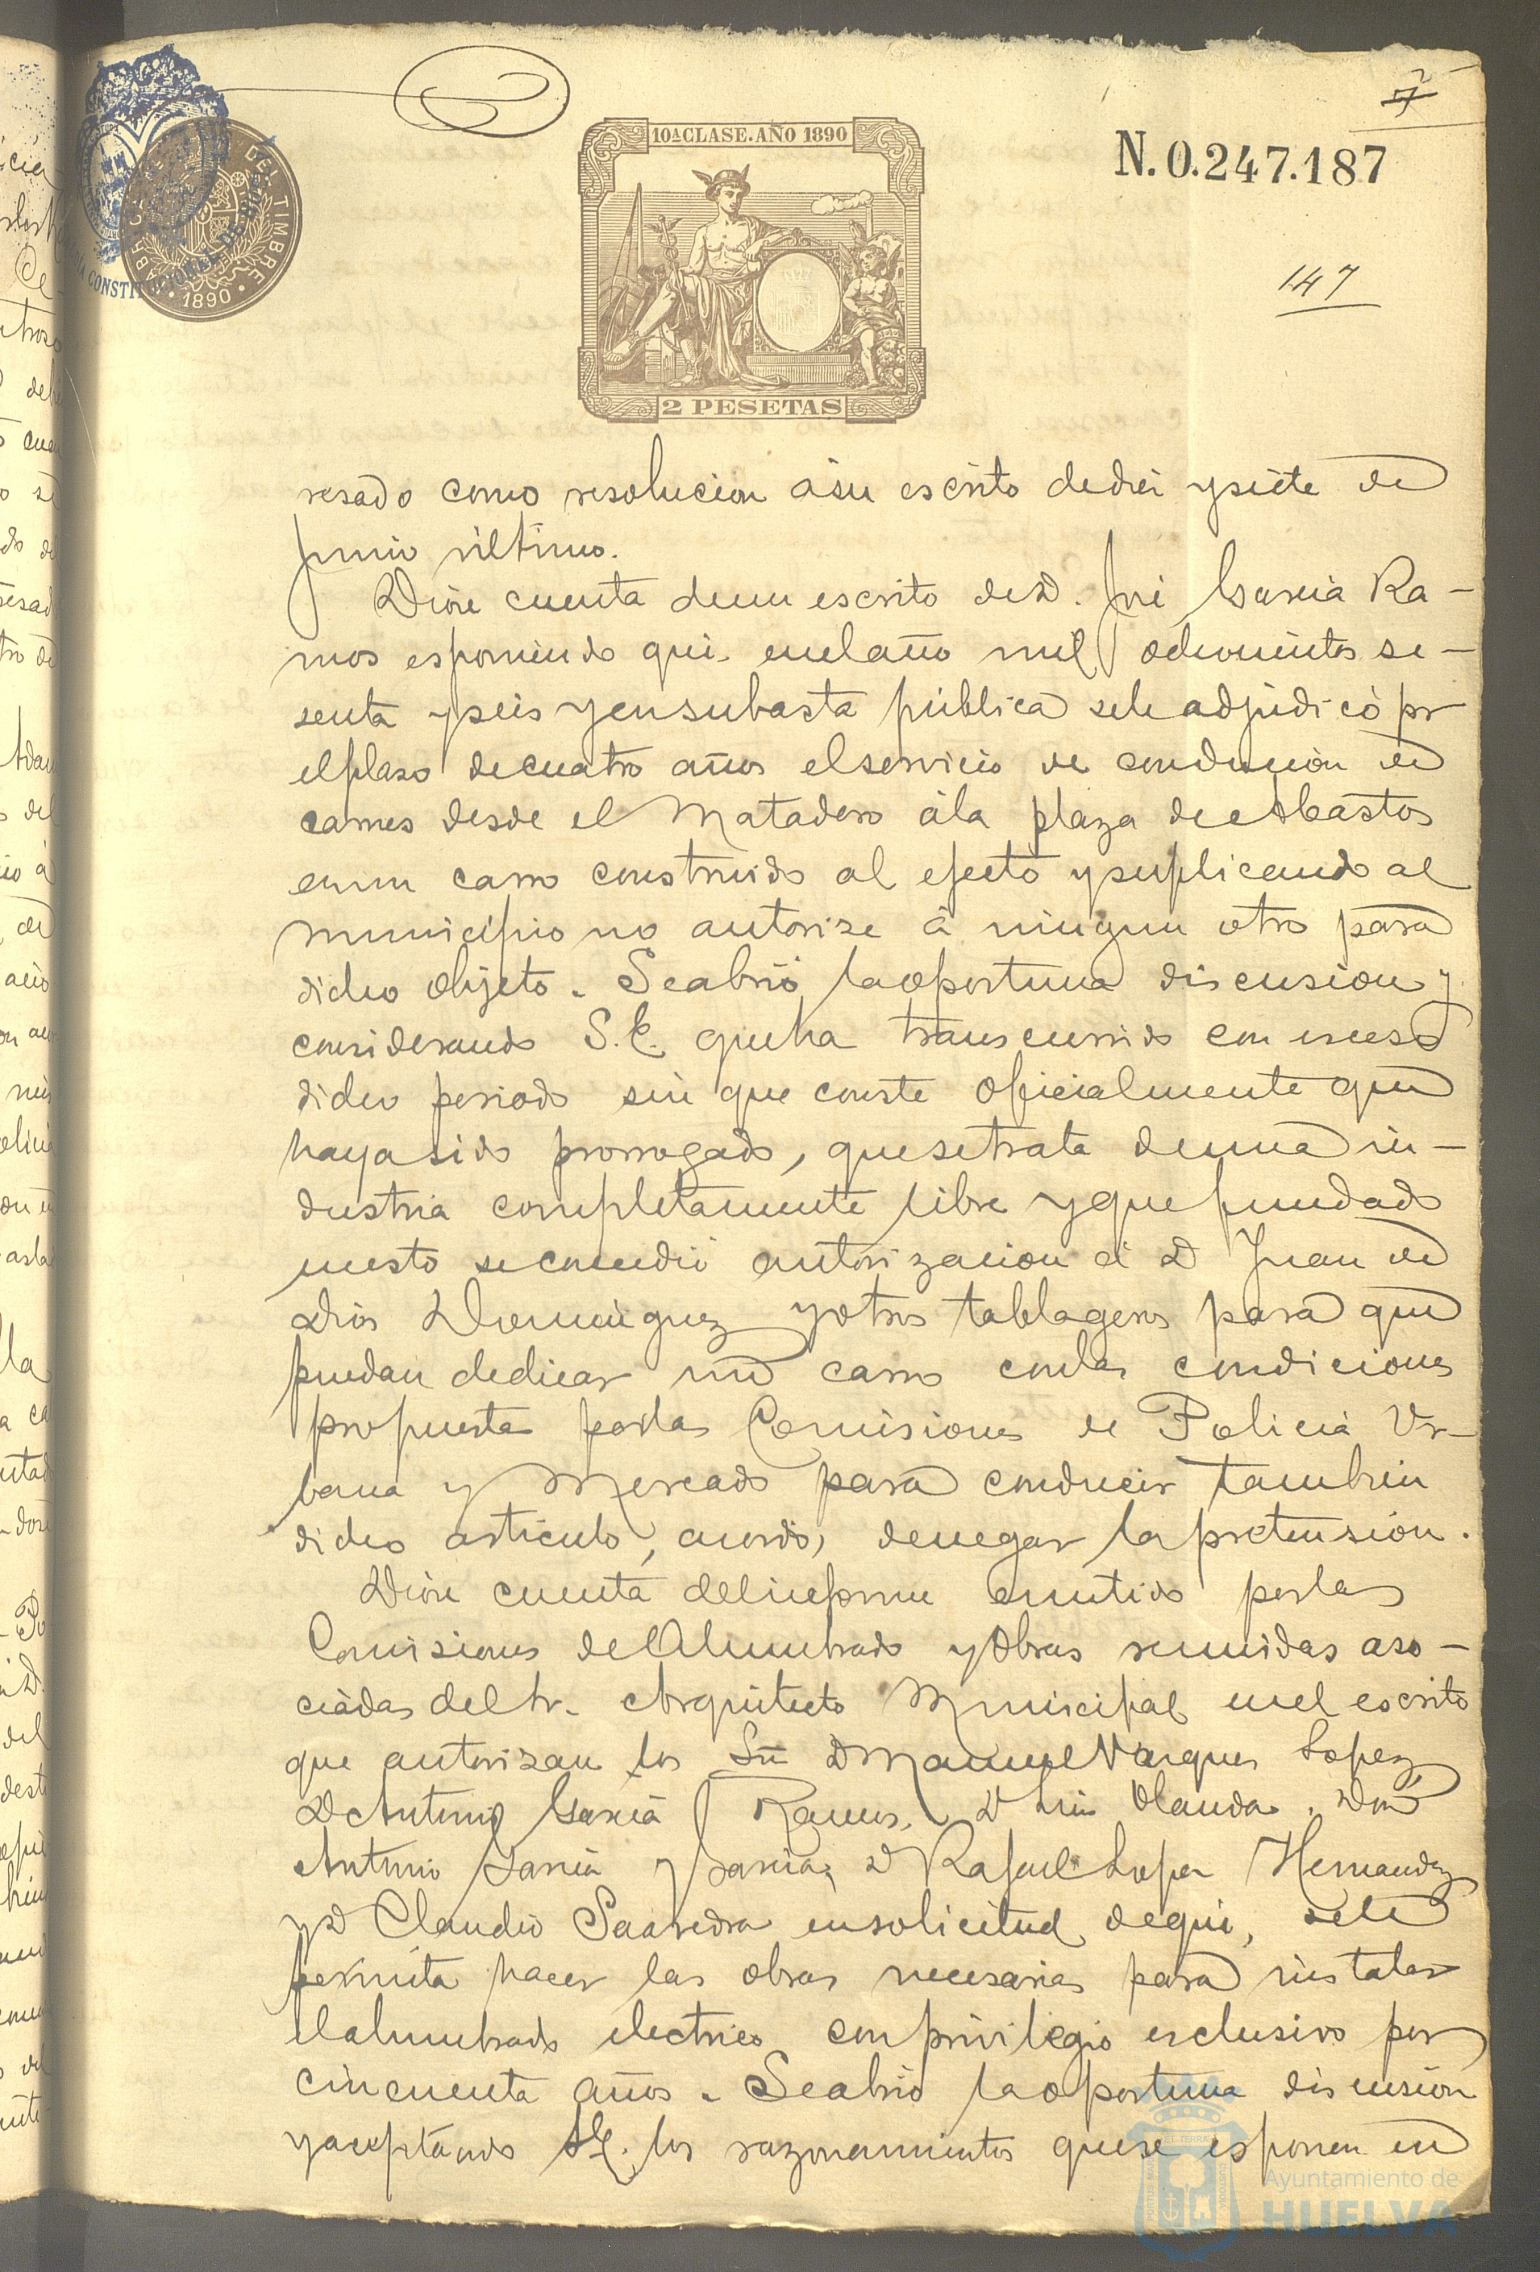 7
10ª CLASE. AÑO 1890
N. 0.247.187
FABRICA DEL TIMBRE
1890
CONSTITUCIONAL DE
147
2 PESETAS
resado como resolucion á su escrito de diez y siete de
Junio último.
Dióse cuenta de un escrito de D. José Garcia Ra-
mos esponiendo que en el año mil ochocientos se-
senta y seis y en subasta pública se le adjudicó por
el plazo de cuatro años el servicio de conducion de
carnes desde el Matadero á la plaza de Abastos
en un carro construido al efecto y suplicando al
Municipio no autorize á ningun otro para
dicho objeto. Se abrió la oportuna discusion y
considerando S.E. que ha transcurrido con esceso
dicho periodo sin que conste oficialmente que
haya sido prorrogado, que se trata de una in-
dustria completamente libre y que fundado
en esto se concedió autorizacion á D Juan de
Dios Dominguez y otros tablageros para que
puedan dedicar un carro con las condiciones
propuestas por las Comisiones de Policia Ur-
bana y Mercado para conducir tambien
dicho articulo, acordó, denegar la pretension.
Dióse cuenta del informe emitido por las
Comisiones de Alumbrado y Obras reunidas aso-
ciadas del Sr. Arquitecto Municipal en el escrito
que autorizan los Sres D Manuel Vazquez Lopez
D Antonio Garcia Ramos, D Luis Olanda, Don
Antonio Garcia y Garcia, D Rafael Lopez Hernandez
y D Claudio Saavedra en solicitud de que, se le
permita hacer las obras necesarias para instalar
el alumbrado electrico con privilegio esclusivo por
cincuenta años. Se abrió la oportuna discusion
y aceptando S.E. los razonamientos que se esponen en
Ayuntamiento de
HUELVA